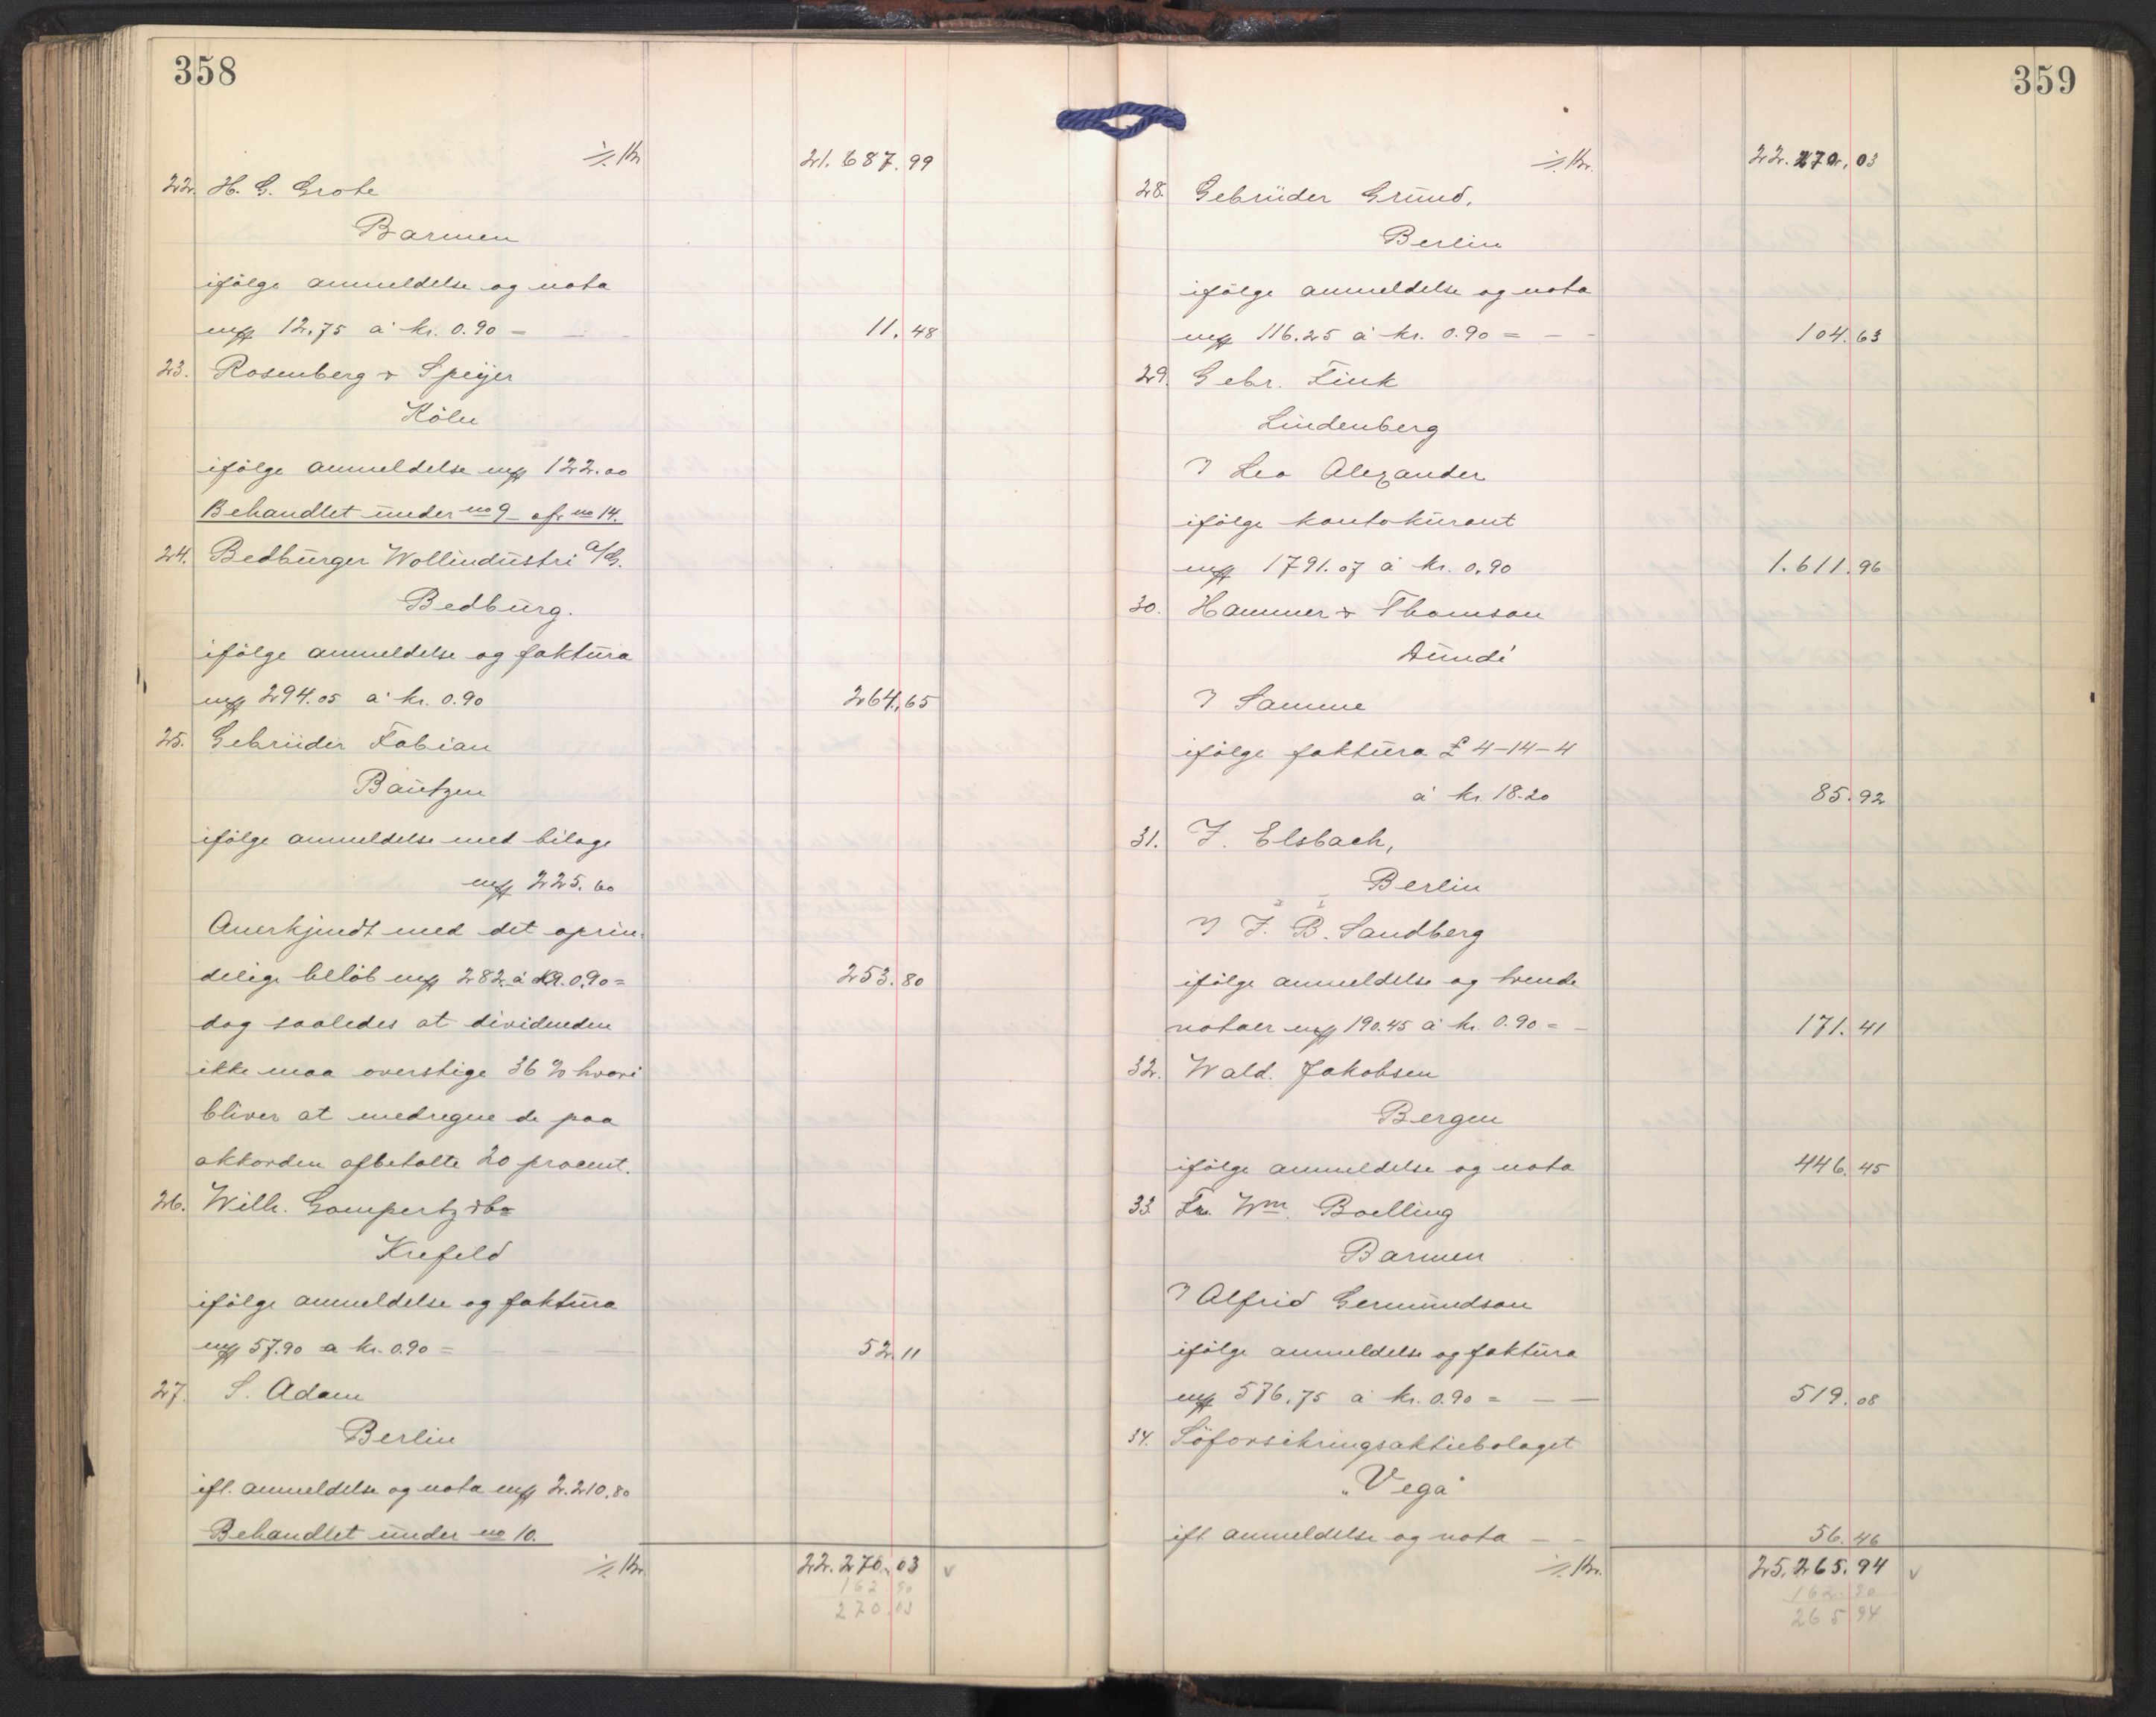 358
⁒ Kr. 21.687.99
22. H. G. Grote
Barmen
ifölge anmeldelse og nota
mk 12.75 à kr. 0.90 — 11.48
23. Rosenberg & Speijer
Köln
ifölge anmeldelse mk 122.00
Behandlet under no 9 - cfr no 14.
24. Bedburger Wollindustri A/G.
Bedburg.
ifölge anmeldelse og faktura
mk 294.05 à kr. 0.90 264.65
25. Gebrüder Fabian
Bautzen
ifölge anmeldelse med bilage
mk 225.60
Anerkjendt med det oprin-
delige belöb mk 282 à KR. 0.90 = 253.80
dog saaledes at dividenden
ikke maa overstige 36 % hvori
bliver at medregne de paa
akkorden afbetalte 20 procent.
26. Wilh. Gompertz & Co
Krefeld
ifölge anmeldelse og faktura
mk 57.90 a kr. 0.90 = 52.11
27. S. Adam
Berlin
ifl. anmeldelse og nota mk 2.210.80
Behandlet under no 10.
⁒ Kr. 22.270.03 v
162 90
270.03
359
⁒ Kr. 22.270.03
28. Gebrüder Grund.
Berlin
ifölge anmeldelse og nota
mk 116.25 à kr. 0.90 = — - 104.63
29. Gebr. Fink
Lindenberg
Leo Alexander
ifölge kontokurant
mk 1791.07 à kr. 0.90 1.611.96
30. Hammer & Thomson
Dundé
Samme
ifölge faktura £ 4-14-4
à kr. 18.20 85.92
31. J. Elsbach,
Berlin
J. B. Sandberg
ifölge anmeldelse og tvende
notaer mk 190.45 à kr. 0.90 = - 171.41
32. Wald. Jakobsen
Bergen
ifölge anmeldelse og nota 446.45
33. Fr. Wm. Boelling
Barmen
Alfrid Germundson
ifölge anmeldelse og faktura
mk 576.75 à kr. 0.90 = — — 519.08
34. Söforsikringsaktiebolaget
„Vega"
ifl anmeldelse og nota — - 56.46
⁒ Kr. 25.265.94 v
162.90
265 94